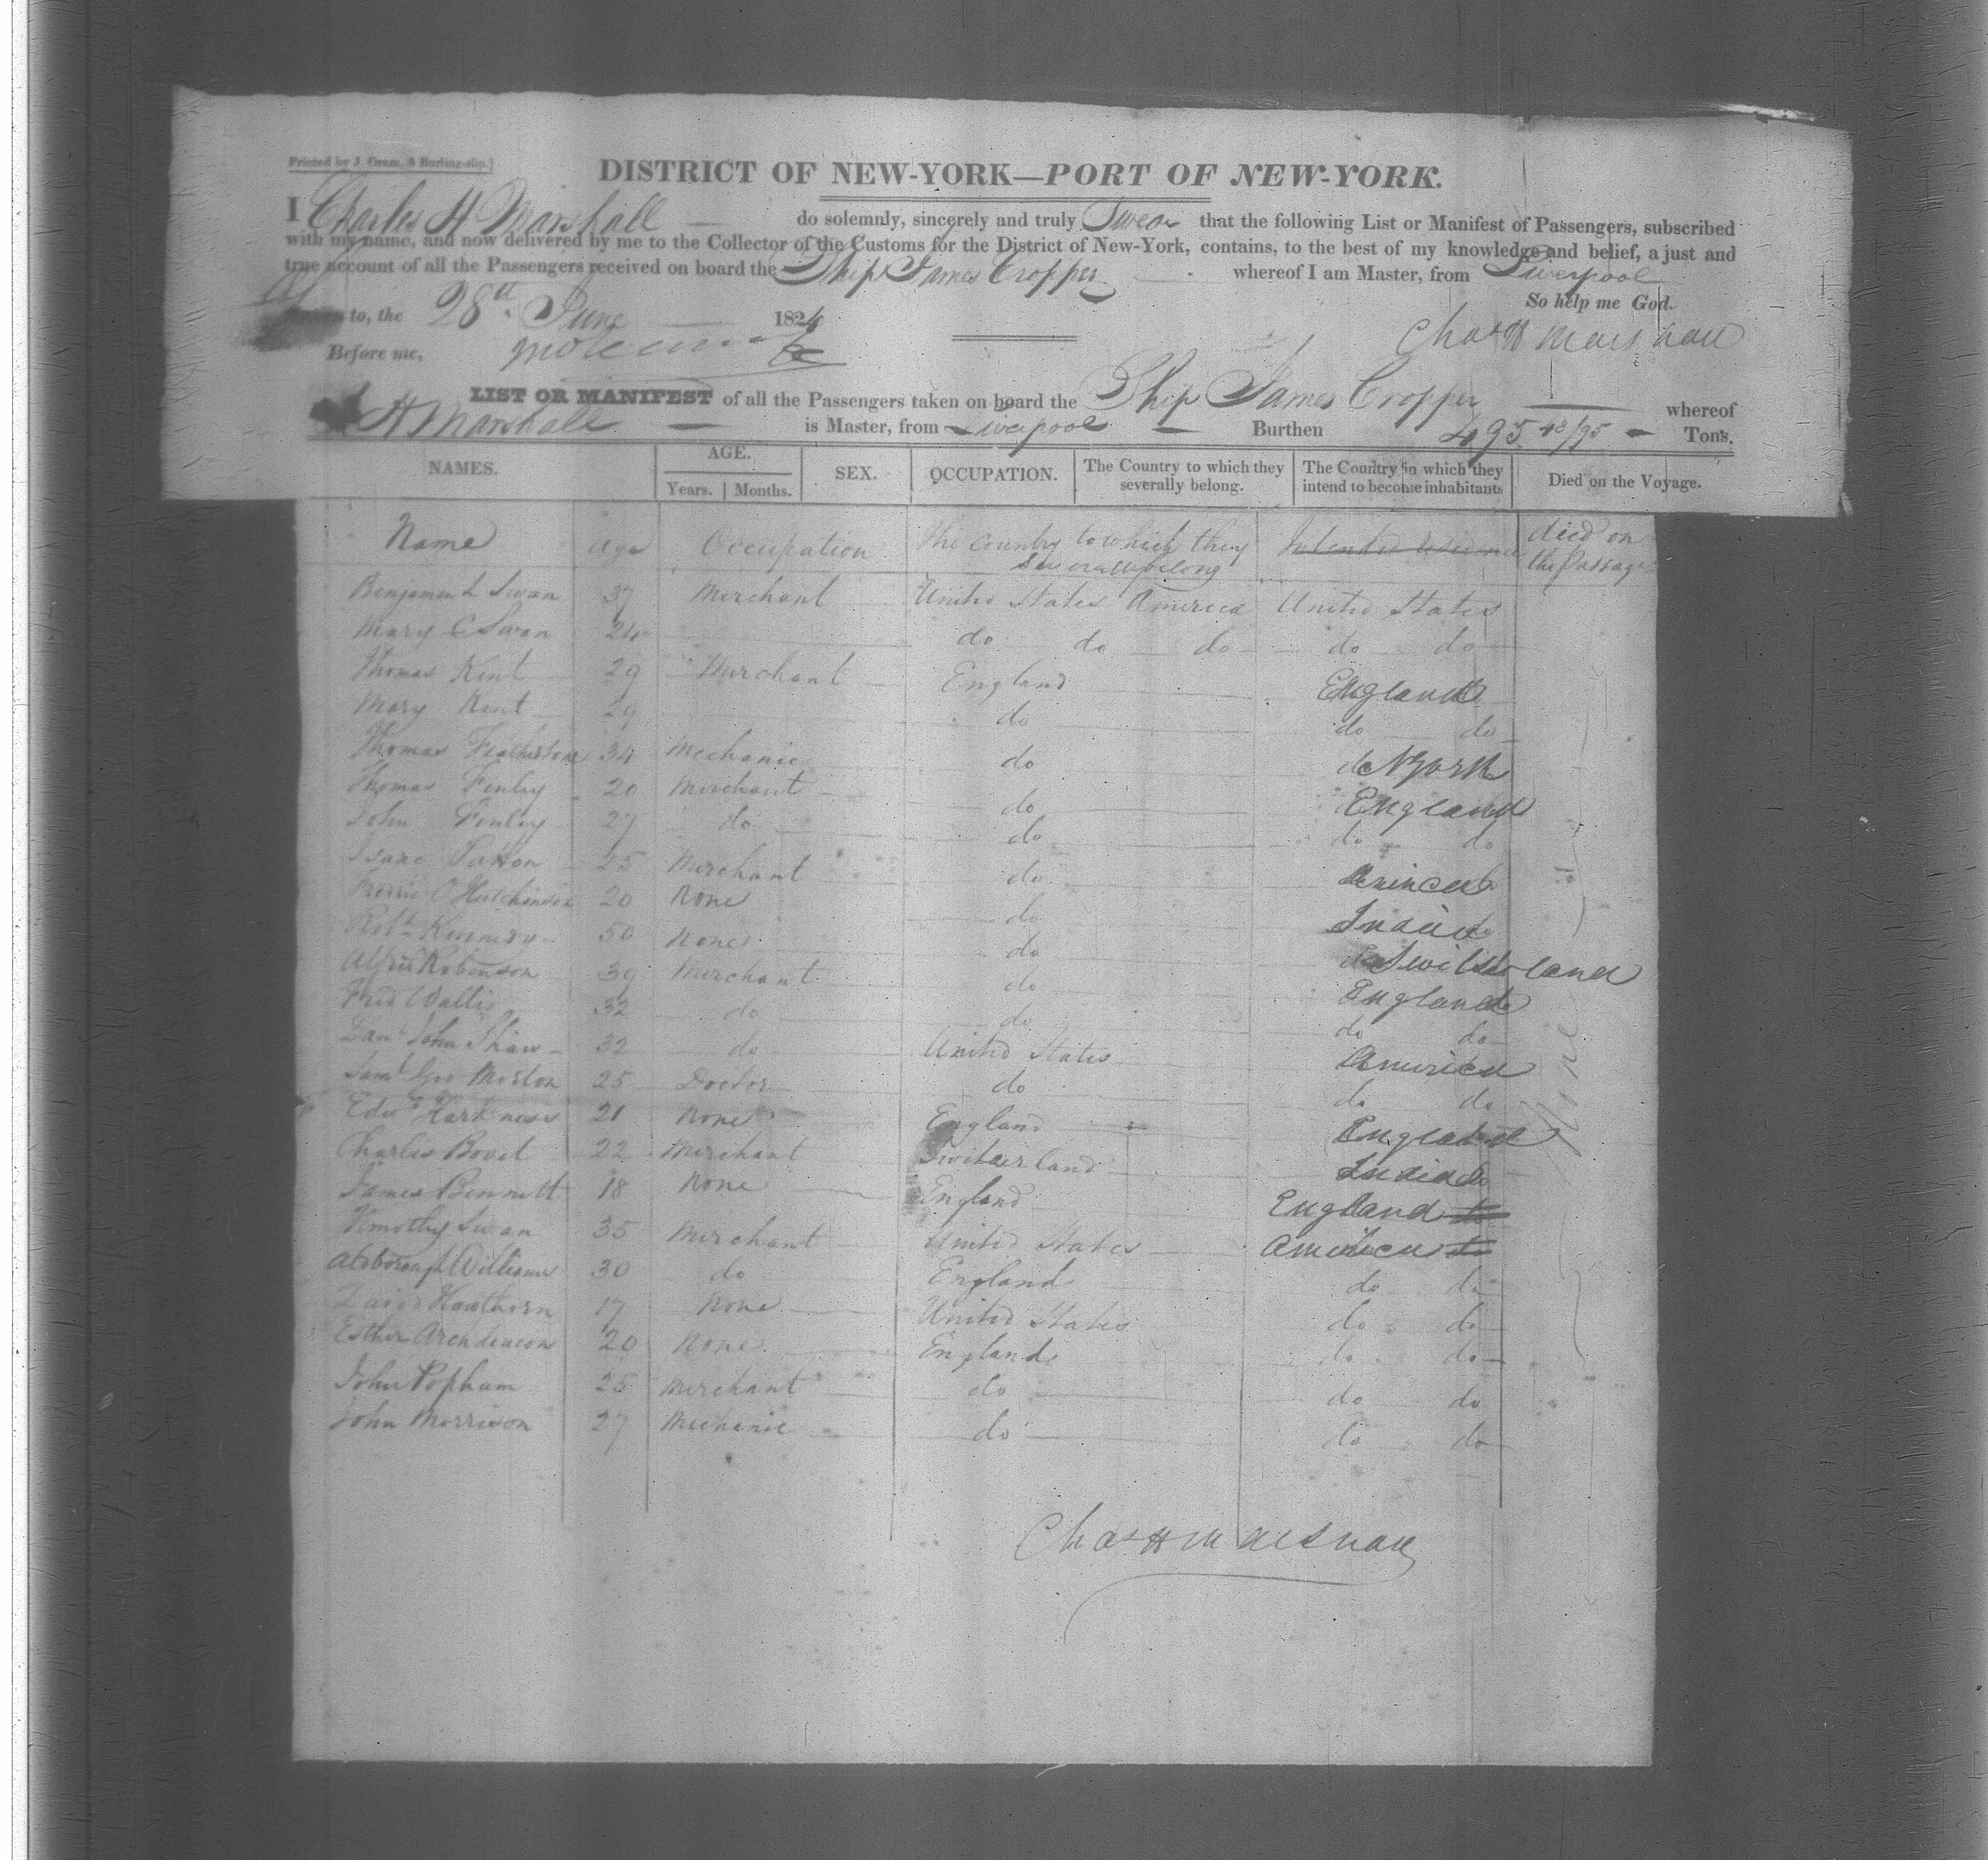 Printed by J. Oram, 5 Burling-slip.]
DISTRICT OF NEW-YORK—PORT OF NEW-YORK.
I Charles H Marshall do solemnly, sincerely and truly Swear that the following List or Manifest of Passengers, subscribed
with my name, and now delivered by me to the Collector of the Customs for the District of New-York, contains, to the best of my knowledge and belief, a just and
true account of all the Passengers received on board the Ship James Cropper whereof I am Master, from Liverpool
So help me God.
to, the 28th June 1824
Chas H Marshall
Before me,
LIST OR MANIFEST of all the Passengers taken on board the Ship James Cropper whereof
H Marshall is Master, from Liverpool Burthen 495 43/95 Tons.
NAMES. AGE. Years. Months. SEX. OCCUPATION. The Country to which they severally belong. The Country in which they intend to become inhabitants Died on the Voyage.
Name Age Occupation the Country to which they severally belong Intended died on the Passage
Benjamin L Swan 37 Merchant United States America United States
Mary C Swan 24 do do do do do
Thomas Kent 29 Merchant England England
Mary Kent 29 do do do
Thomas Featherstone 34 Mechanic do NYork
Thomas Finley 20 Merchant do England
John Finley 27 do do do do
Isaac Patton 25 Merchant do
O Hutchinson 20 None do India
Robt Kennedy 50 None do Switserland
Alfred Robinson 39 Merchant do England
Fred Wallis 32 do do do do
Danl John Shaw 32 do United States America
Saml Geo Morton 25 Doctor do do do
Edw Harkness 21 None England England
Charles Bovet 22 Merchant Switzerland India
James Bennett 18 None England England
Timothy Swan 35 Merchant United States America
Williams 30 do England do do
David Hawthorn 17 None United States do do
Esther Archdeacon 20 None England do do
John Popham 25 Merchant do do do
John Morrison 27 Mechanic do do do
None
Chas H Marshall